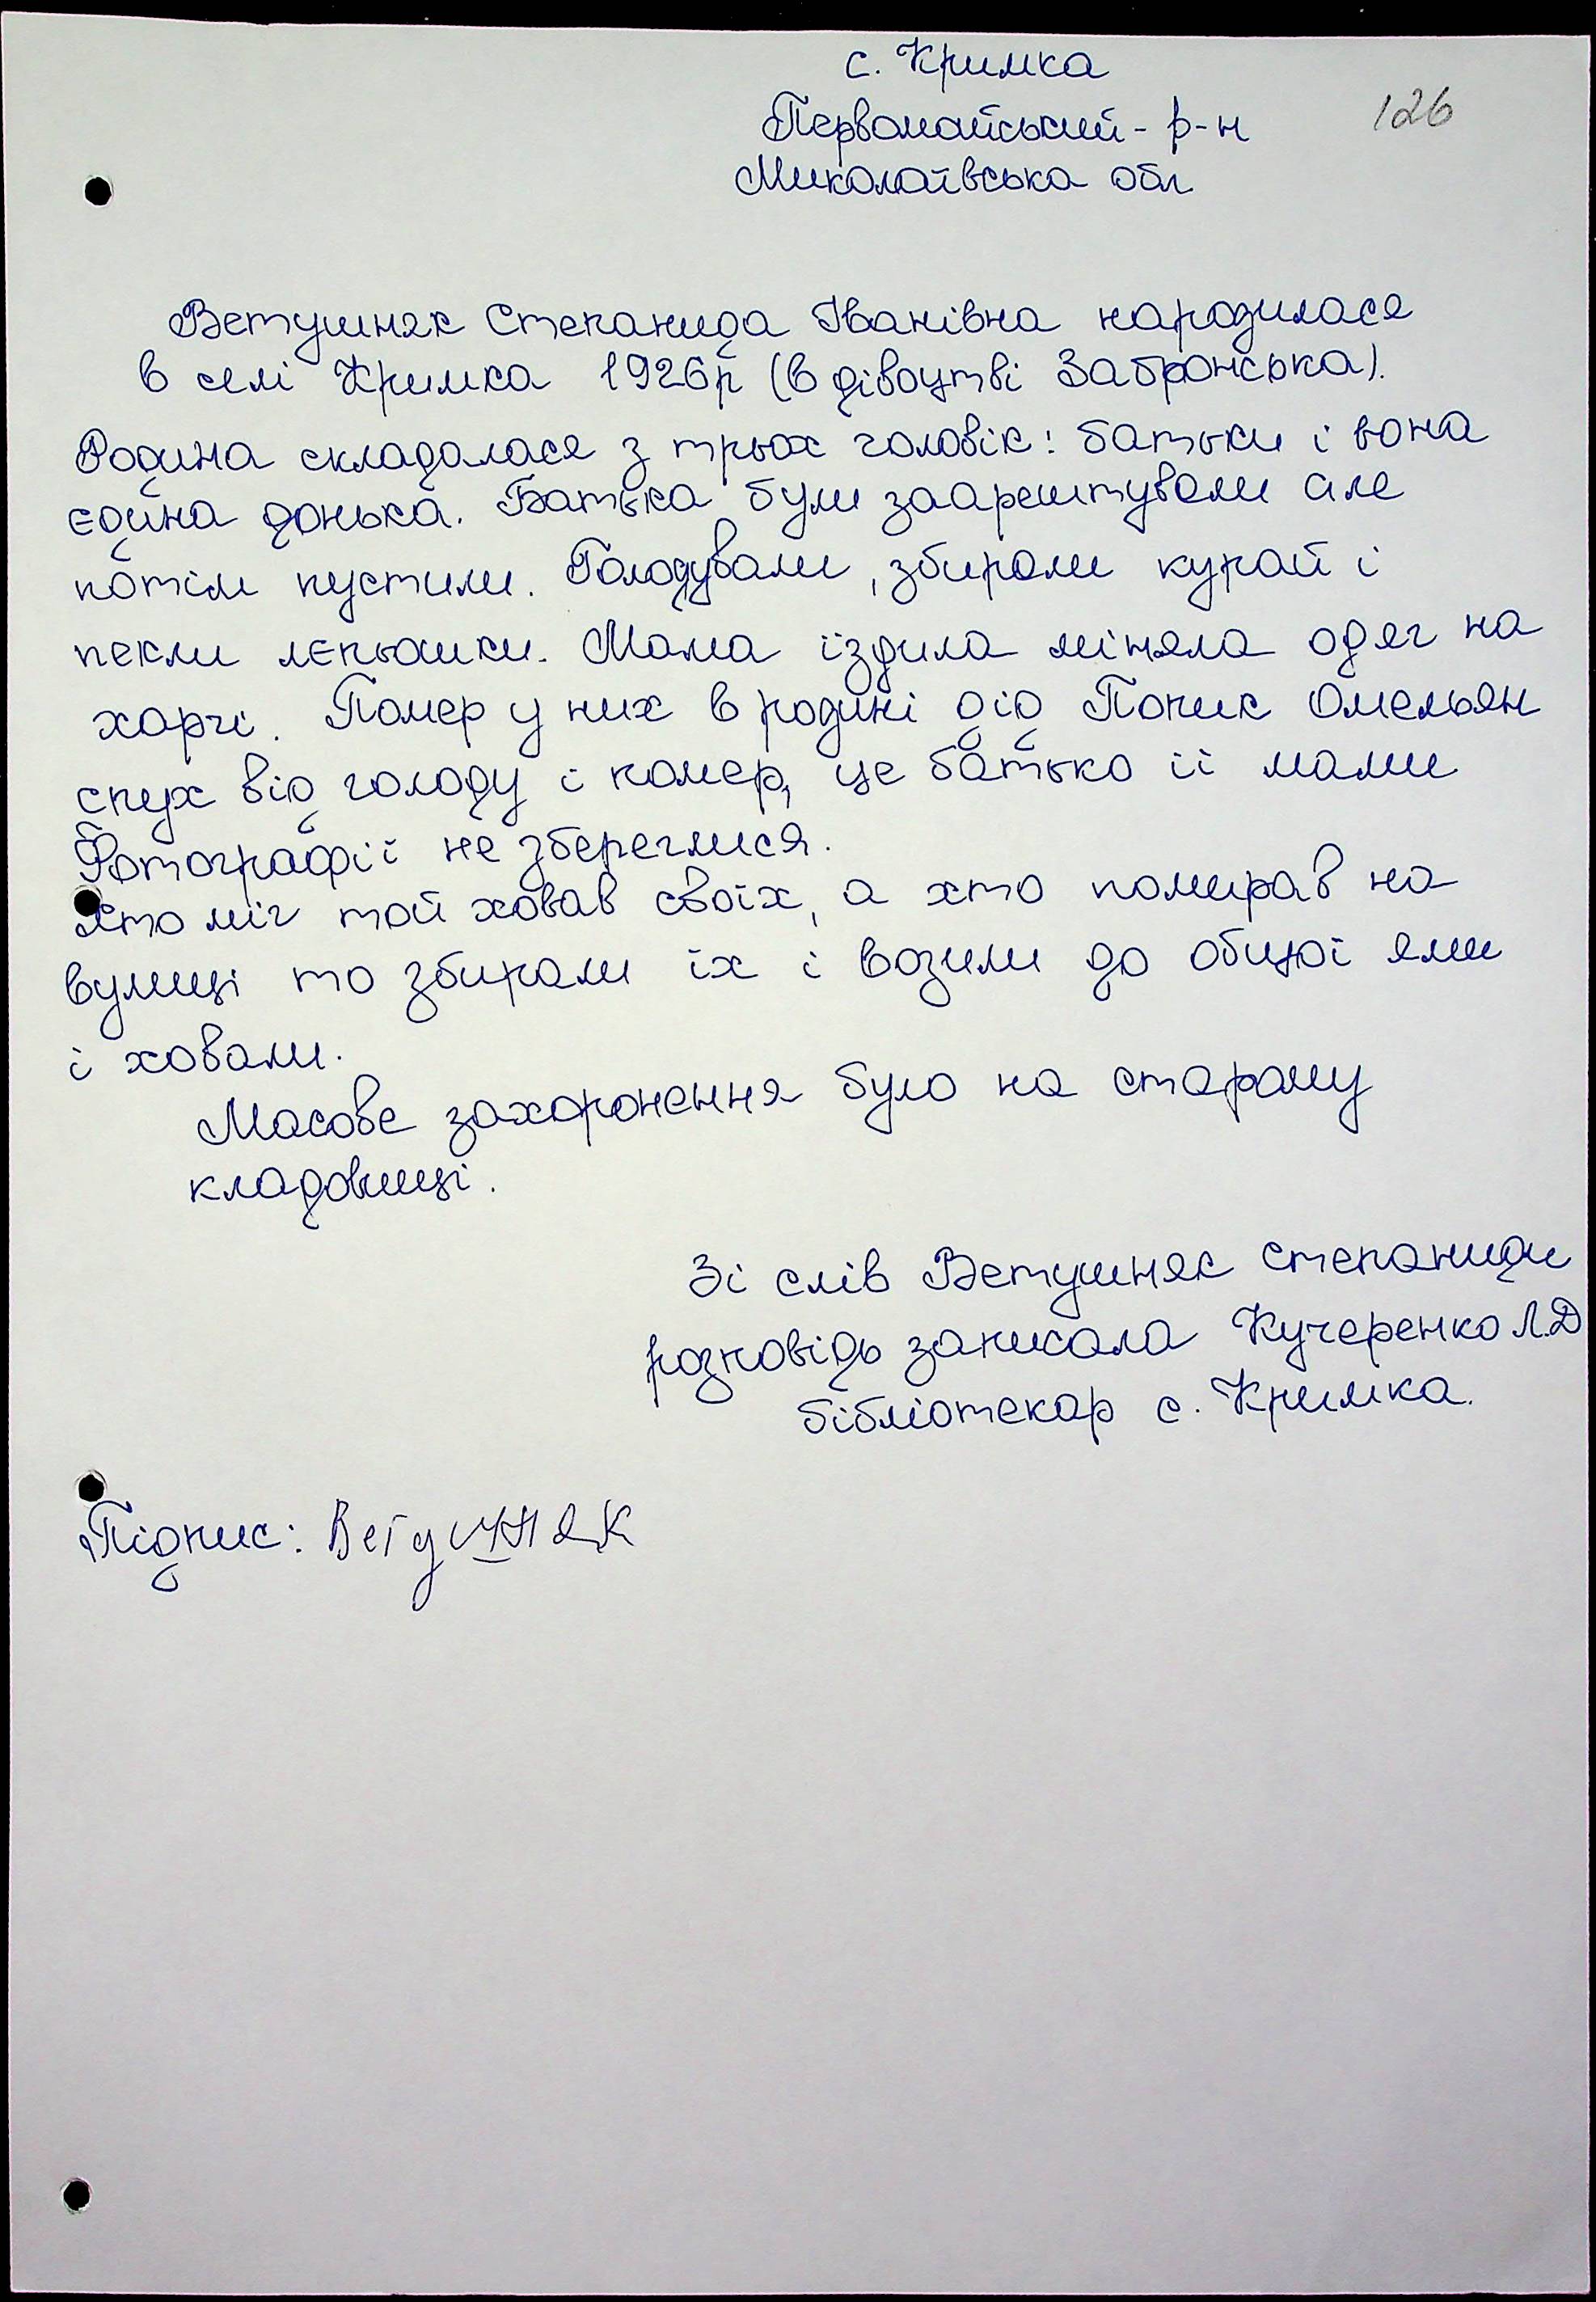 с. Кримка
126
Первомайський - р-н
Миколаївська обл
Ветушняк Степанида Іванівна народилася
в селі Кримка 1926р (в дівоцтві Забронська).
Родина складалася з трьох чоловік: батьки і вона
єдина донька. Батька були заарештували але
потім пустили. Голодували, збирали курай і
пекли лєпьошки. Мама їздила міняла одяг на
харчі. Помер у них в родині дід Попик Омельян
спух від голоду і помер, це батько її мами
Фотографії не збереглися.
Хто міг той ховав своїх, а хто помирав на
вулиці то збирали їх і возили до общої ями
і ховали.
Масове захоронення було на старому
кладовищі.
Зі слів Ветушняк Степаниди
розповідь записала Кучеренко Л.Д
бібліотекар с. Кримка.
Підпис: Ветушняк